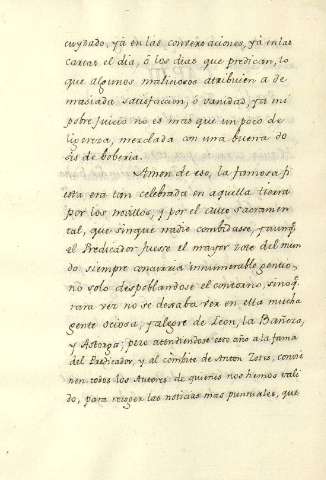 cuydado, yá en las conversaciones, yá en las
cartas el dia, ó los dias que predican, lo
que algunos maliciosos atribuien a de
masiada satisfacion, ó vanidad, ya mi
pobre Juicio no es mas que un poco de
ligereza, mezclada con una buena do
sis de boberia.
Amen de eso, la famosa fi
esta era tan celebrada en aquella tierra
por los novillos, y por el auto sacramen
tal, que sinque nadie combidasse, y aunq.
el Predicador fuese el mayor zote del mun
do siempre concurria innumerable gentio,
no solo despoblandose el contorno, sinoq.
rara vez no se dexaba ver en ella mucha
gente ociosa, y alegre de Leon, la Bañeza,
y Astorga; pero atendiendose este año a la fama
del Predicador, y al combite de Anton Zotes, convie
nen todos los Autores de quienes nos hemos vali
do, para recoger las noticias mas puntuales, que